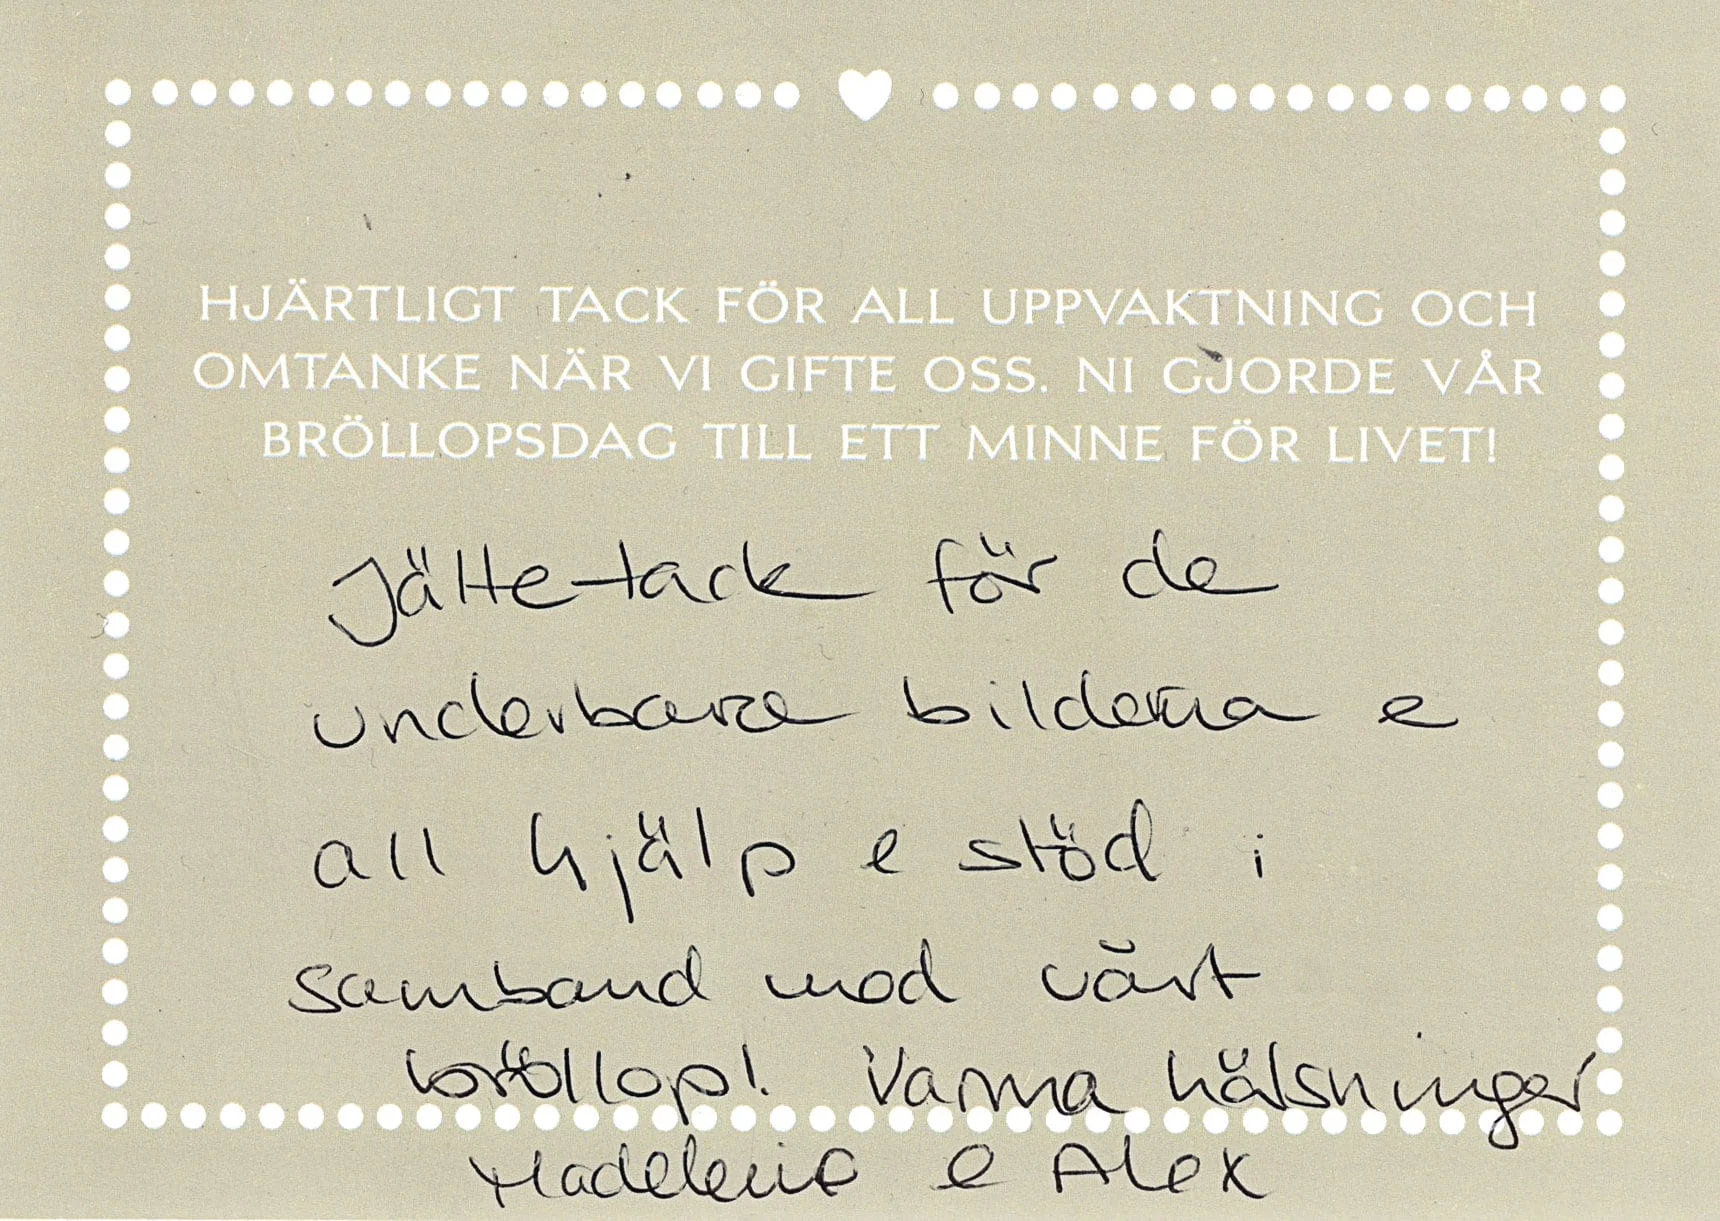 HJÄRTLIGT TACK FÖR ALL UPPVAKTNING OCH
OMTANKE NÄR VI GIFTE OSS. NI GJORDE VÅR
BRÖLLOPSDAG TILL ETT MINNE FÖR LIVET!
Jättetack för de
underbara bilderna e
all hjälp e stöd i
samband med vårt
bröllop! Varma hälsningar
Madeleine e Alex